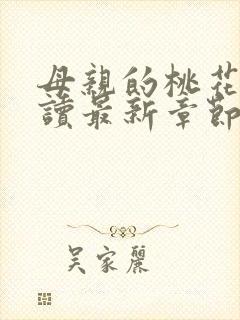 母親的桃花
讀最新章節
吳家麗